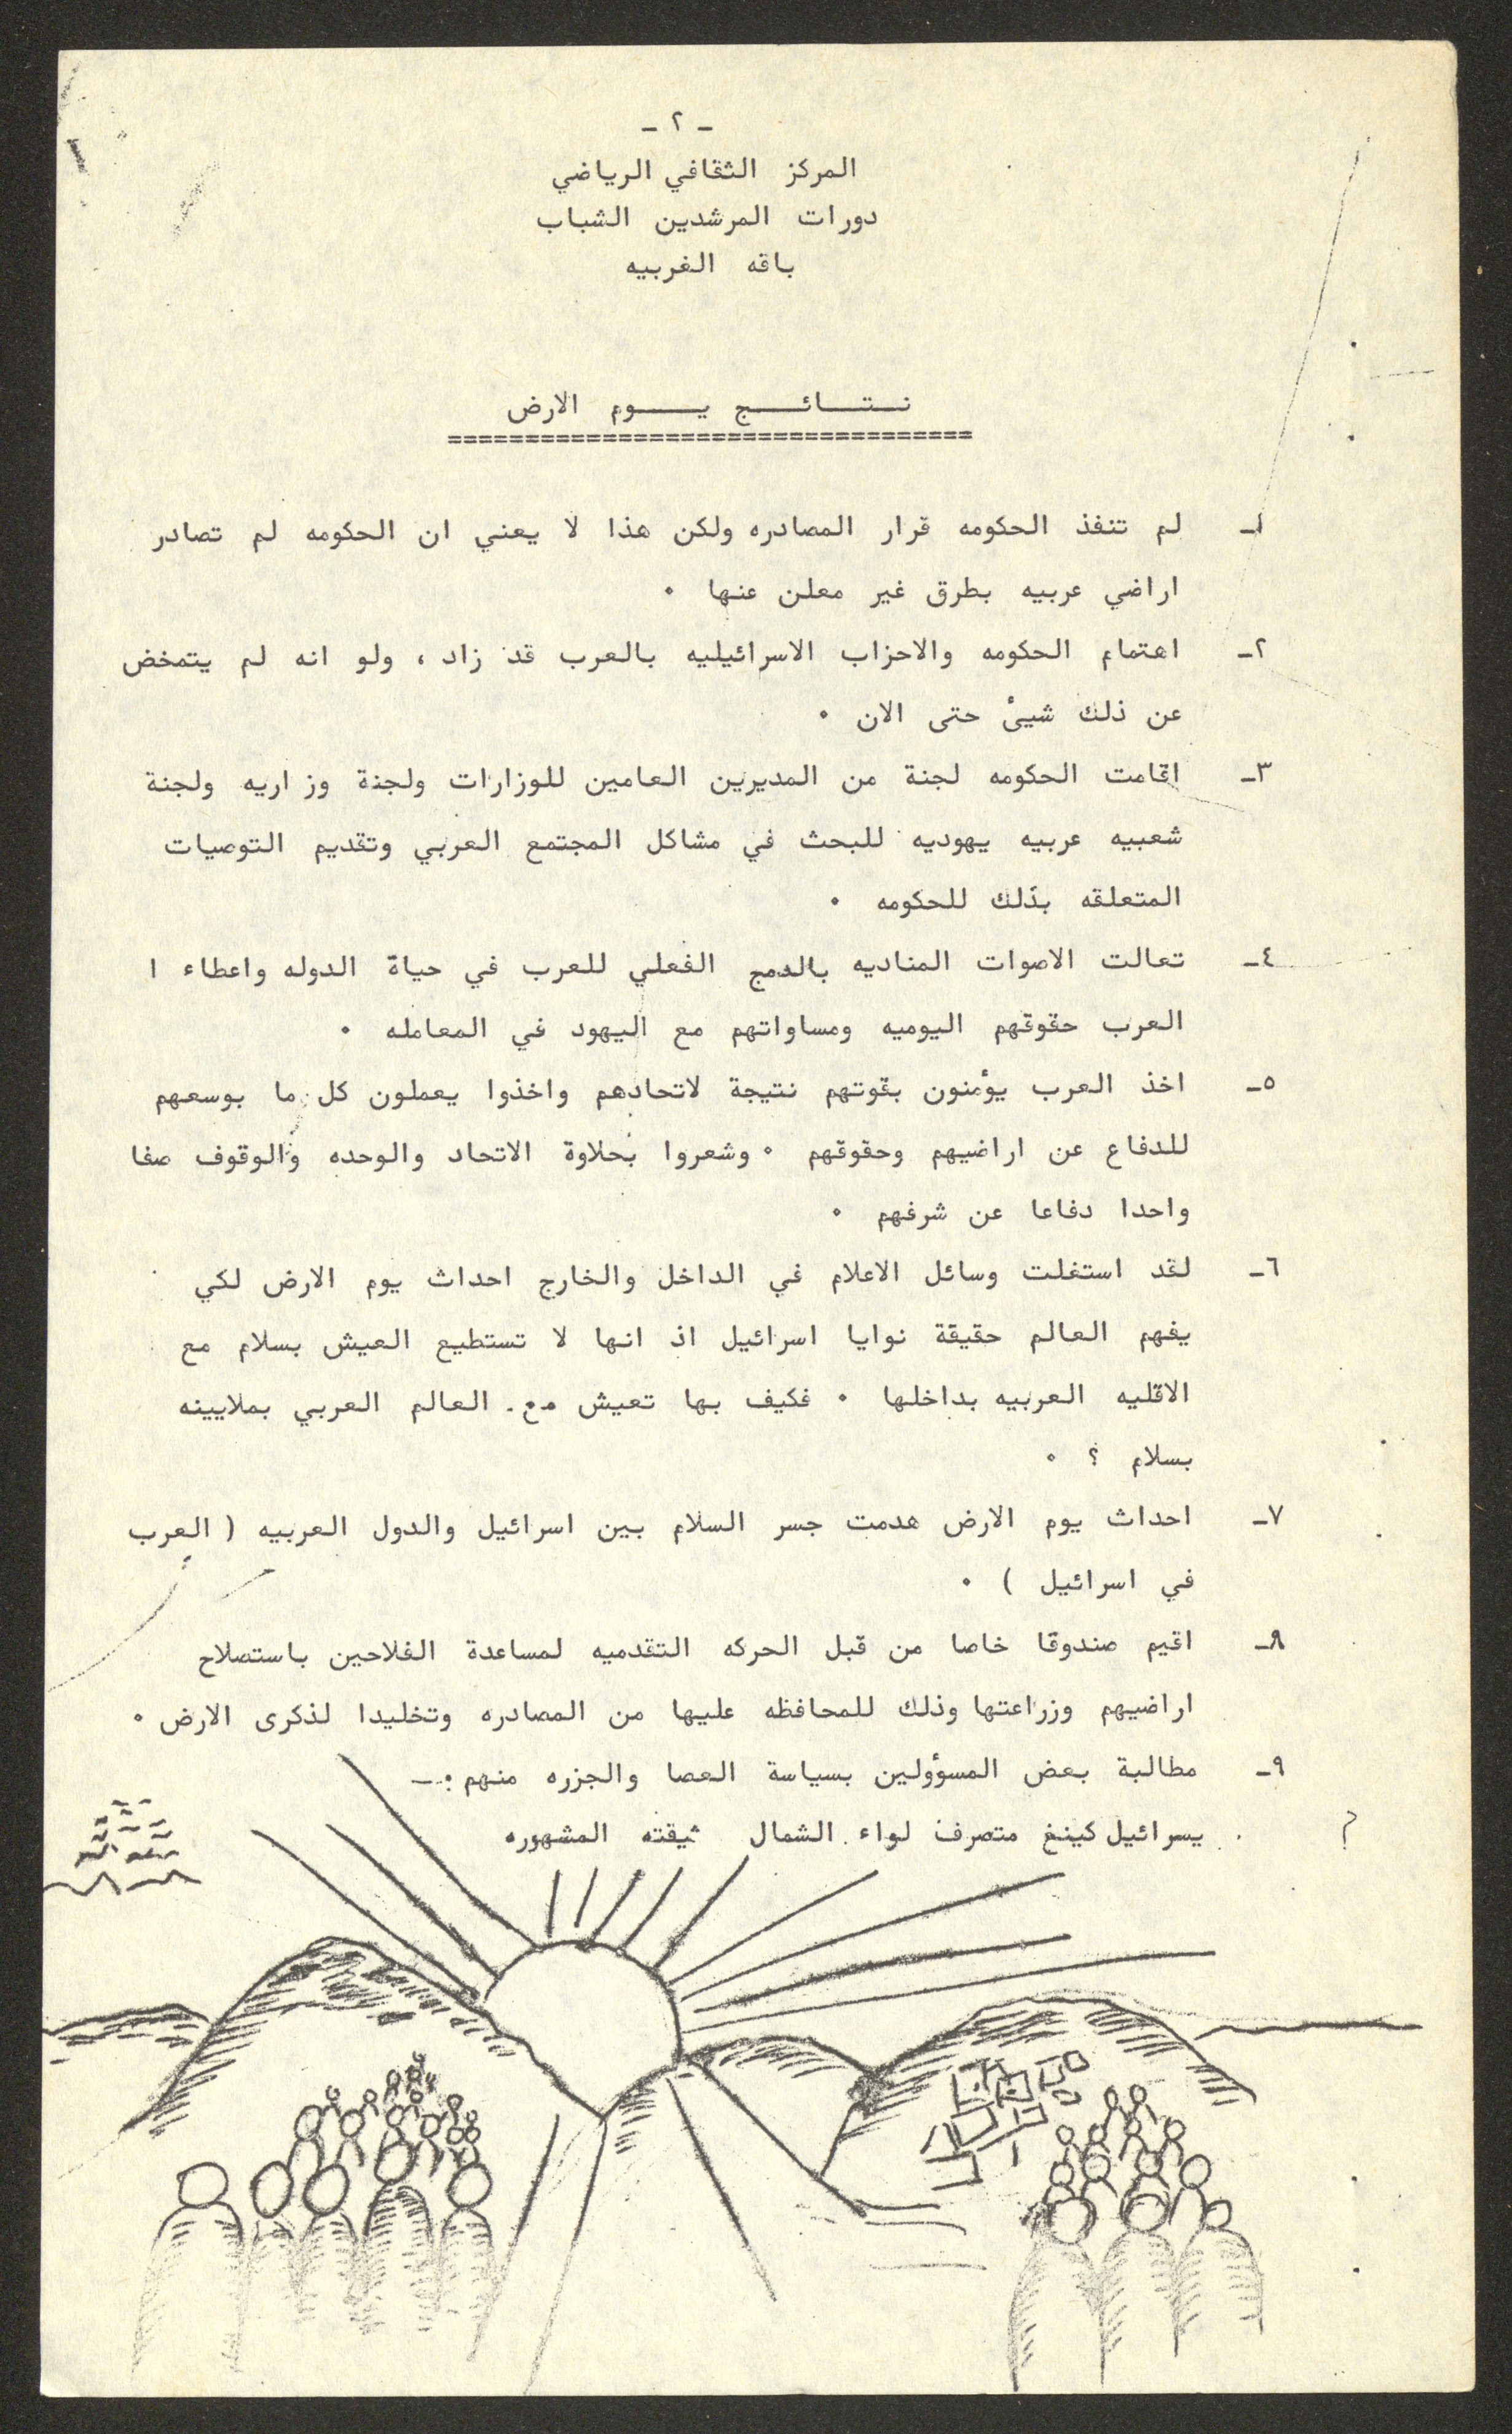 - ٢ -
المركز الثقافي الرياضي
دورات المرشدين الشباب
باقه الغربيه
نـتـــائـــج يــــوم الارض
==================================
١- لم تنفذ الحكومه قرار المصادره ولكن هذا لا يعني ان الحكومه لم تصادر
اراضي عربيه بطرق غير معلن عنها ٠
٢- اهتمام الحكومه والاحزاب الاسرائيليه بالعرب قد زاد ، ولو انه لم يتمخض
عن ذلك شيئ حتى الان ٠
٣- اقامت الحكومه لجنة من المديرين العامين للوزارات ولجنة وزاريه ولجنة
شعبيه عربيه يهوديه للبحث في مشاكل المجتمع العربي وتقديم التوصيات
المتعلقه بذلك للحكومه ٠
٤- تعالت الاصوات المناديه بالدمج الفعلي للعرب في حياة الدوله واعطاء ا
العرب حقوقهم اليوميه ومساواتهم مع اليهود في المعامله ٠
٥- اخذ العرب يؤمنون بقوتهم نتيجة لاتحادهم واخذوا يعملون كل ما بوسعهم
للدفاع عن اراضيهم وحقوقهم ٠ وشعروا بحلاوة الاتحاد والوحده والوقوف صفا
واحدا دفاعا عن شرفهم ٠
٦- لقد استغلت وسائل الاعلام في الداخل والخارج احداث يوم الارض لكي
يفهم العالم حقيقة نوايا اسرائيل اذ انها لا تستطيع العيش بسلام مع
الاقليه العربيه بداخلها ٠ فكيف بها تعيش مع العالم العربي بملايينه
بسلام ؟ ٠
٧- احداث يوم الارض هدمت جسر السلام بين اسرائيل والدول العربيه ( العرب
في اسرائيل ) ٠
٨- اقيم صندوقا خاصا من قبل الحركه التقدميه لمساعدة الفلاحين باستصلاح
اراضيهم وزراعتها وذلك للمحافظه عليها من المصادره وتخليدا لذكرى الارض ٠
٩- مطالبة بعض المسؤولين بسياسة العصا والجزره منهم :-
؟ يسرائيل كينغ متصرف لواء الشمال ثيقته المشهوره